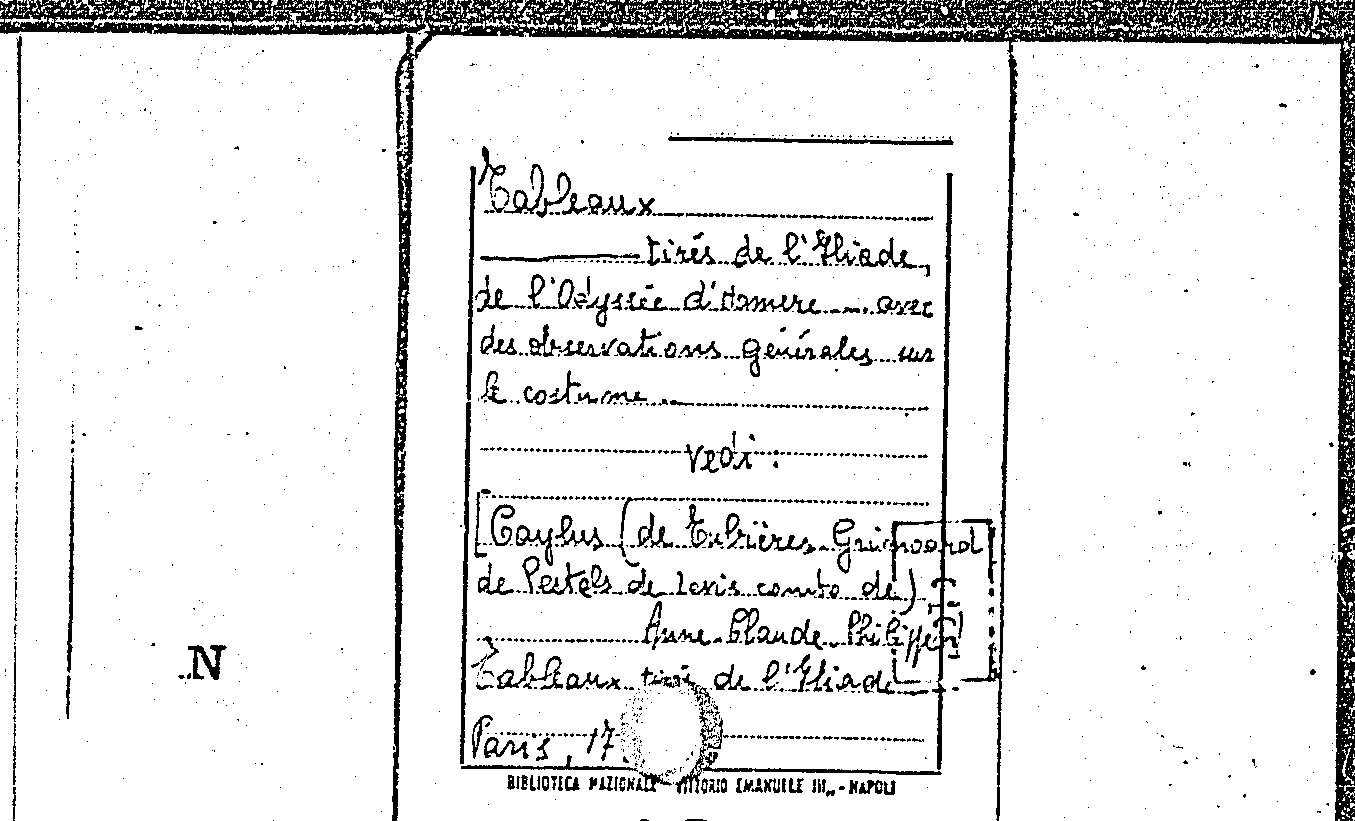 Tableaux
tirés de l'Iliade,
de l'Odyssée d'Homere ... avec
des observations générales sur
le costume ..
vedi :
[Caylus (de Tubières Grimoard
de Pestels de Levis comte de)
Anne Claude Philippe]
Tableaux tirés de l'Iliade
Paris, 17
BIBLIOTECA NAZIONALE "VITTORIO EMANUELE III" - NAPOLI
N